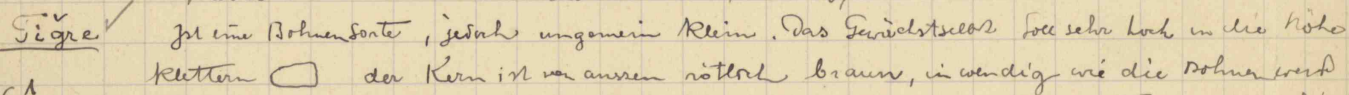 Tiğre Ist eine Bohnensorte, jedoch ungemein klein. Das Gewächs selbst soll sehr hoch in die Höhe
klettern der Kern ist von aussen rötlich braun, inwendig wie die Bohnen weiß